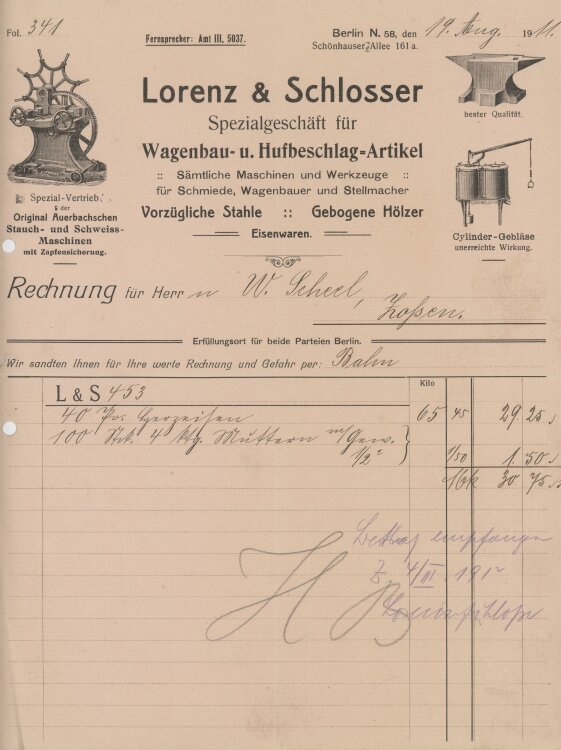 Fol. 341
Fernsprecher: Amt III, 5037.
Berlin N. 58, den 19. Aug. 1911.
Schönhauser Allee 161a.
Lorenz & Schlosser
Spezialgeschäft für
Wagenbau- u. Hufbeschlag-Artikel
:: Sämtliche Maschinen und Werkzeuge ::
für Schmiede, Wagenbauer und Stellmacher
Vorzügliche Stahle :: Gebogene Hölzer
Eisenwaren.
bester Qualität.
Spezial-Vertrieb
der
Original Auerbachschen
Stauch- und Schweiss-
Maschinen
mit Zapfensicherung.
Cylinder-Gebläse
unerreichte Wirkung.
Rechnung für Herrn W. Scheel,
Zossen.
Erfüllungsort für beide Parteien Berlin.
Wir sandten Ihnen für Ihre werte Rechnung und Gefahr per: Bahn
Kilo
L & S 453
40 Pr. Herzeisen 65 45 29 25
100 Stck. 4 ktg. Muttern m/Gew. 1/2" 1/50 1. 50
Mk 30. 75
Betrag empfangen
4/III 1912